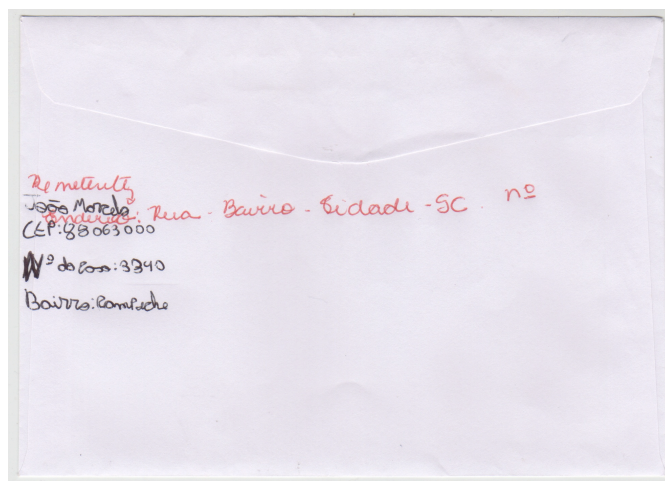 Remetente
João Marcelo
Endereço: Rua - Bairro - Cidade - SC. nº
CEP: 88063000
Nº da casa: 3340
Bairro: Campeche